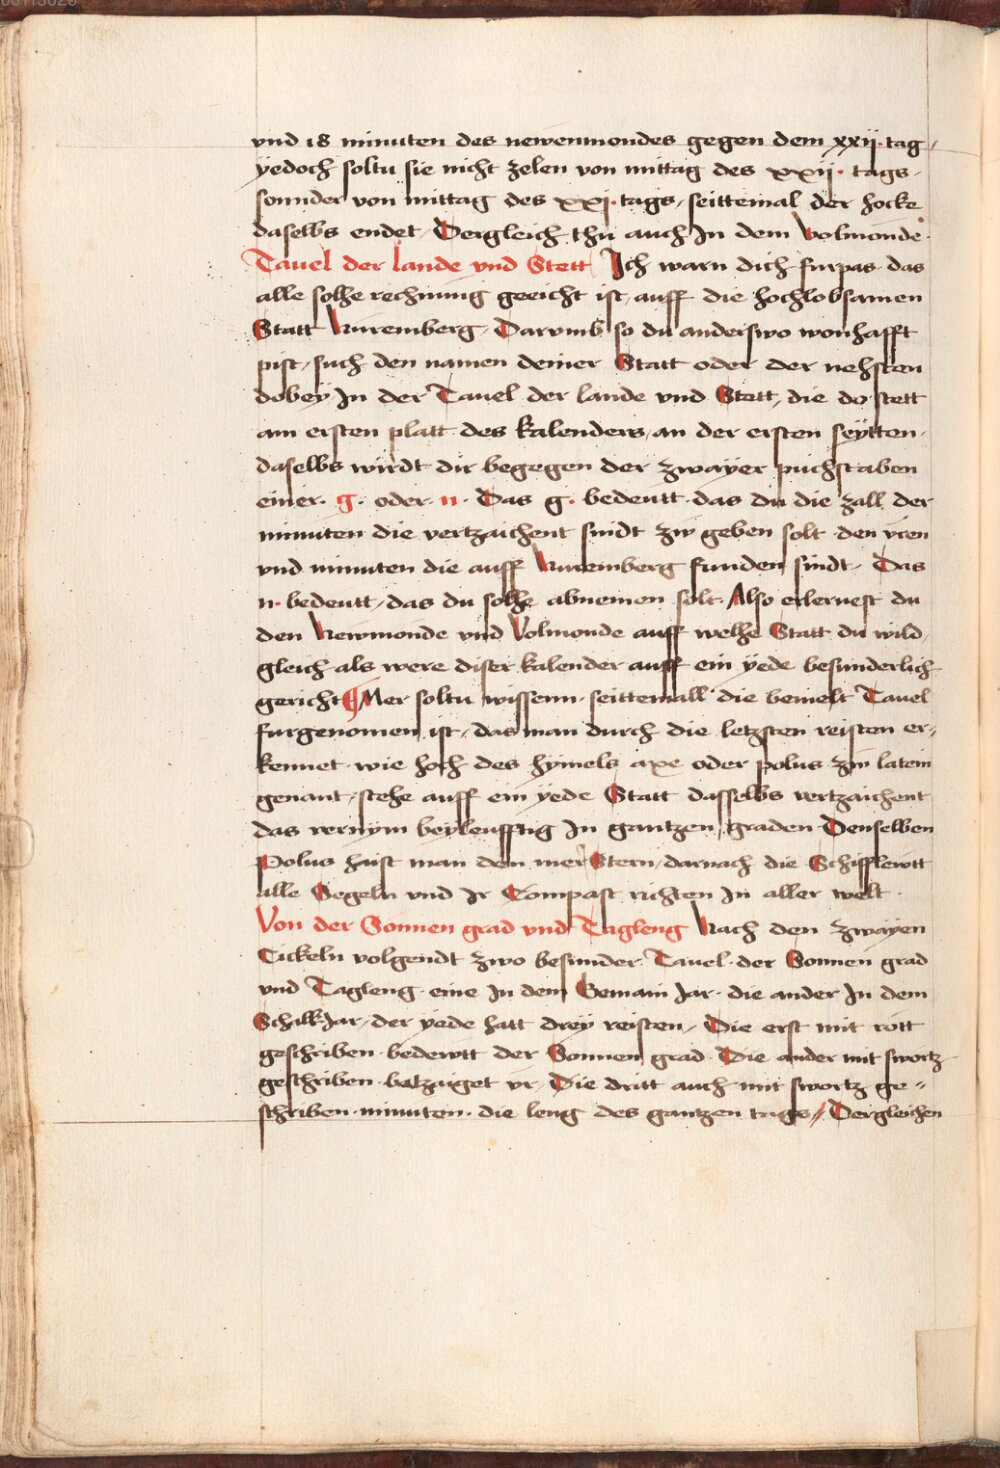 vnd 18 minuten des newenmondes gegen dem xxij · tag /
yedoch soltu sie nicht zelen von mittag des xxij · tags ·
sonnder von mittag des xxj · tags / seittemal der hocke
daselbs endet / Dergleich thu auch In dem volmonde ·
Tauel der lande vnd Stett Ich warn dich furpas das
alle solhe rechnung geeicht ist / auff die hochlobsamen
Statt Nuremberg / Darvmb so du anderswo wonhafft
pist / such den namen deiner Statt oder der nehsten
dobey In der Tauel der lande vnd Stett / die do stett
am ersten platt des kalenders / an der ersten seytten ·
daselbs wirdt dir begegen der zwayer puchstaben
einer · g · oder · n · Das g · bedeutt das du die zall der
minuten die vertzaichent sindt zw geben solt den vren
vnd minuten die auff Nuremberg funden sindt / Das
n · bedeutt / das du solhe abnemen solt · Also erlernest du
den Newmonde vnd Volmonde auff welhe Statt du wild /
gleich als were diser kalender auff ein yede besunderlich
gericht ¶ Mer soltu wissenn · seittemall die bemelt Tauel
furgenomen ist / das man durch die letzsten reisten er-
kennet wie hoch des hymels axe oder polus zw latein
genant / stehe auff ein yede Statt dasselbs vertzaichent
das vernym beyleufftig In gantzen graden Denselben
Polus haist man den mer Stern / darnach die Schifflewtt
alle Segeln vnd Ir Compast richten In aller welt ·
Von der Sonnen grad vnd Tagleng Nach den zwayen
Cickeln volgendt zwo besunder Tauel der Sonnen grad
vnd Tagleng eine In dem Gemain Jar · die ander In dem
Schalk Jar / der yede hatt drey reisten / Die erst mit rott
geschriben bedewtt der Sonnen grad Die ander mit swortz
geschriben batzaiget vr / Die dritt auch mit swortz ge-
schriben minuten · die leng des gantzen tags / Dergleichen